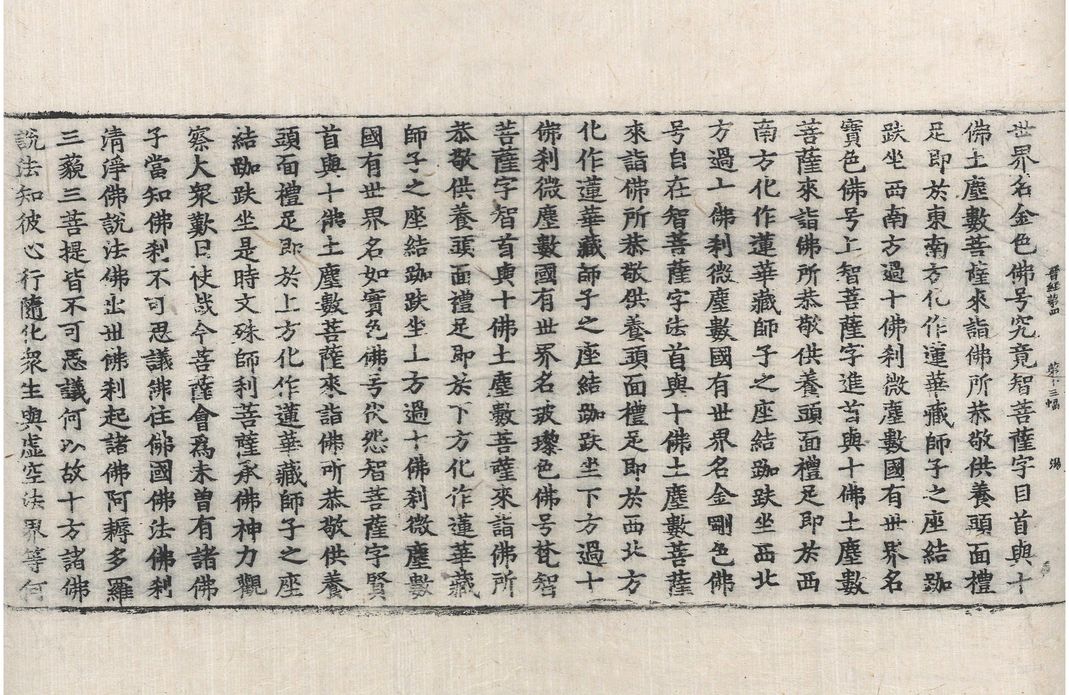 晉經第四 第十三幅 湯
世界名金色佛号究竟智菩薩字目首與十
佛土塵數菩薩來詣佛所恭敬供養頭面禮
足即於東南方化作蓮華藏師子之座結跏
趺坐西南方過十佛刹微塵數國有世界名
寶色佛号上智菩薩字進首與十佛土塵數
菩薩來詣佛所恭敬供養頭面禮足即於西
南方化作蓮華藏師子之座結跏趺坐西北
方過十佛刹微塵數國有世界名金剛色佛
号自在智菩薩字法首與十佛土塵數菩薩
來詣佛所恭敬供養頭面禮足即於西北方
化作蓮華藏師子之座結跏趺坐下方過十
佛刹微塵數國有世界名玻瓈色佛号梵智
菩薩字智首與十佛土塵數菩薩來詣佛所
恭敬供養頭面禮足即於下方化作蓮華藏
師子之座結跏趺坐上方過十佛刹微塵數
國有世界名如實色佛号伏怨智菩薩字賢
首與十佛土塵數菩薩來詣佛所恭敬供養
頭面禮足即於上方化作蓮華藏師子之座
結跏趺坐是時文殊師利菩薩承佛神力觀
察大衆歎曰快哉今菩薩會爲未曾有諸佛
子當知佛刹不可思議佛住佛國佛法佛刹
清淨佛說法佛出世佛刹起諸佛阿耨多羅
三藐三菩提皆不可思議何以故十方諸佛
說法知彼心行隨化衆生與虛空法界等何